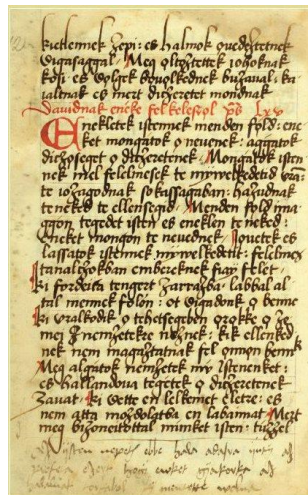 kietlennek zepi: es halmok ouedzetnek
Vigasaggal. Meg oltoztettek iohoknak
kosi es volgek bouolkednek buzaual: ki
ialtnak es mert dicheretet mondnak
Dauidnak eneke fel keleszol ps Lxv
Enekletek istennek menden föld: ene
ket mongatok o neuenek: aggatok
dichoseget o dicheretenek. Mongatok isten
nek mel felelmesek te mywelkedetid
te iozagodnak sokassagaban: hazudnak
teneked te ellensegid. Menden föld ima
ggon tegedet isten es eneklen teneked:
Eneket mongon te neuednek. Iouetek es
lassatok istennek mywelkedetit: felelmes
tanalchokban embereknek fiay felet.
ki fordeita tengert zarrazba: labbal al
tal mennek folion: ot vigadonk o benne
ki vralkodik o tehetsegeben örökke o ze
mei a nemzetekre neznek: kik ellenked
nek nem magaztatnak fel önnen bennek
Meg algatok nemzetek my istenenket:
es hallandoua tegetek o dicheretenek
zauat. ki vette en lelkemet eletre: es
nem atta mozdolatba en labaimat Mert
meg bizoneitottal minket isten: tüzzel